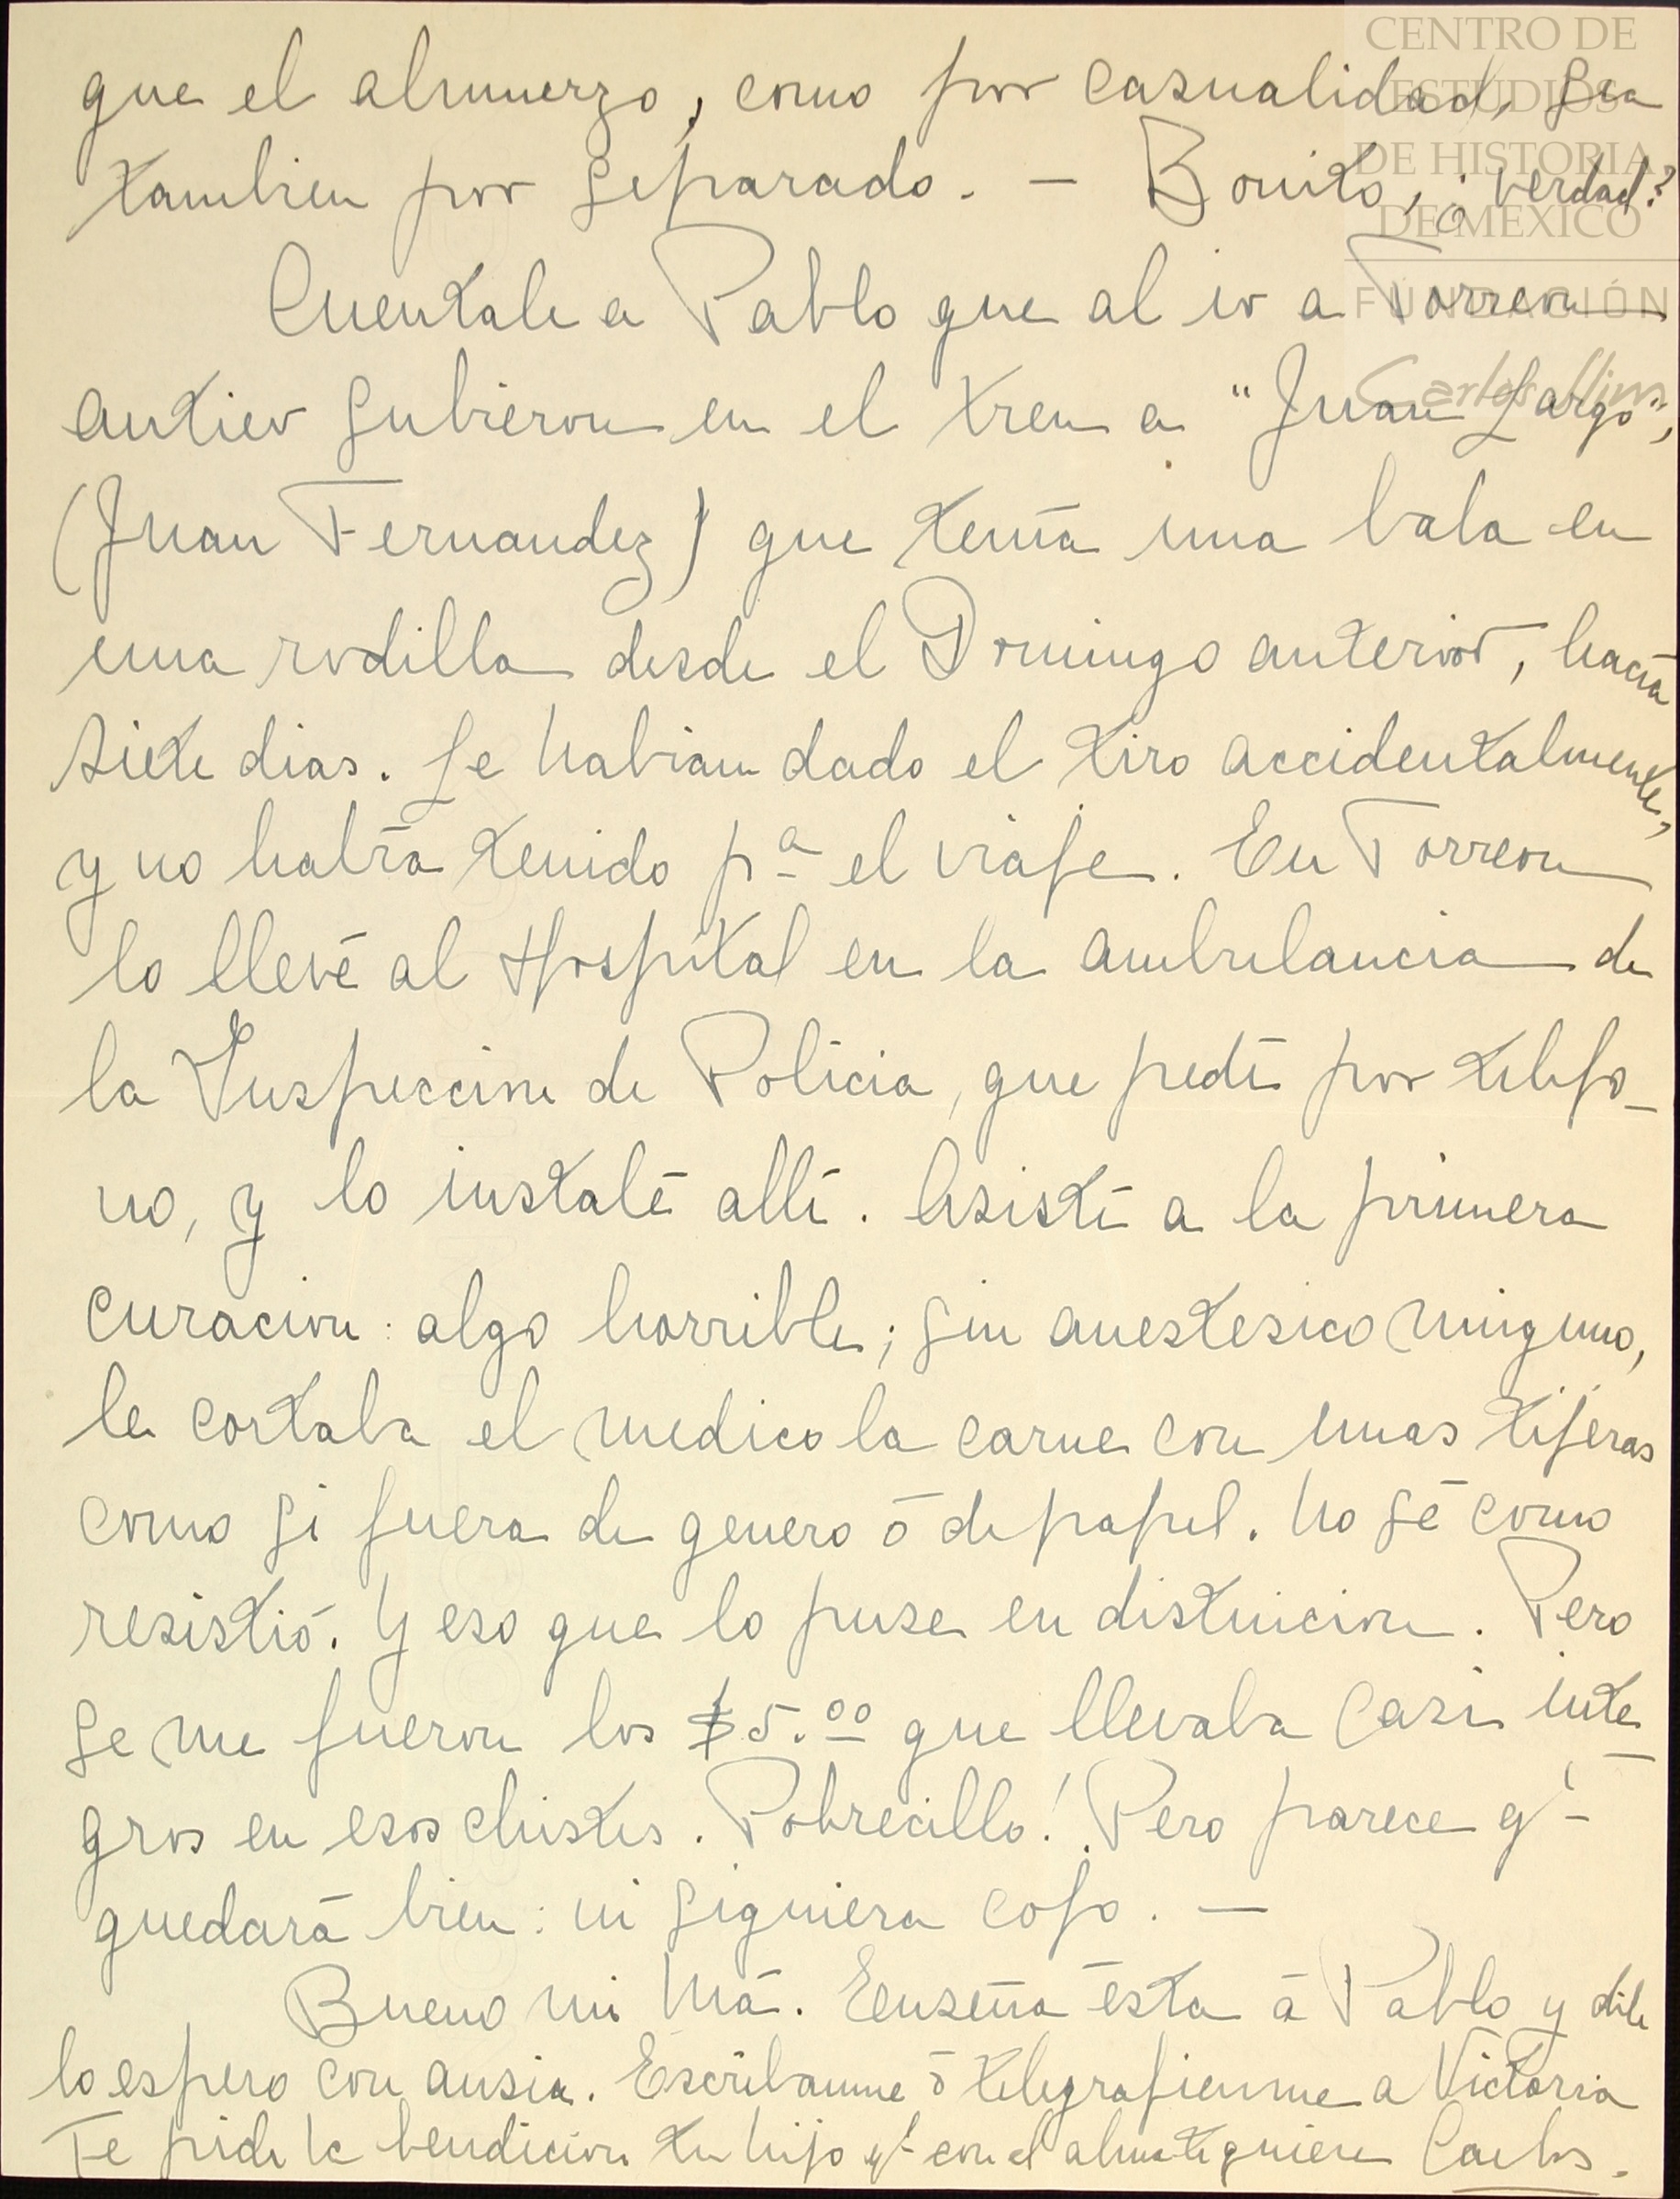 CENTRO DE
ESTUDIOS
DE HISTORIA
DE MEXICO
FUNDACIÓN
Carlos Slim
que el almuerzo, como por casualidad, sea
tambien por separado. — Bonito, ¿verdad?
Cuentale a Pablo que al ir a Torreon
antier subieron en el tren a "Juan Largo",
(Juan Fernandez) que tenía una bala en
una rodilla desde el Domingo anterior, hacía
siete dias. Le habian dado el tiro accidentalmente,
y no había tenido pª el viaje. En Torreon
lo llevé al Hospital en la ambulancia de
la Inspeccion de Policia, que pedí por telefo-
no, y lo instalé allí. Asistí a la primera
curacion: algo horrible; sin anestesico ninguno,
le cortaba el medico la carne con unas tijeras
como si fuera de genero ó de papel. No sé como
resistió. Y eso que lo puse en distincion. Pero
se me fueron los $5.00 que llevaba casi inte-
gros en esos chistes. Pobrecillo! Pero parece q'
quedará bien: ni siquiera cojo. —
Bueno mi Má. Enseña ésta á Pablo y dile
lo espero con ansia. Escribanme ó telegrafienme a Victoria
Te pide la bendicion tu hijo q' con el alma te quiere Carlos.